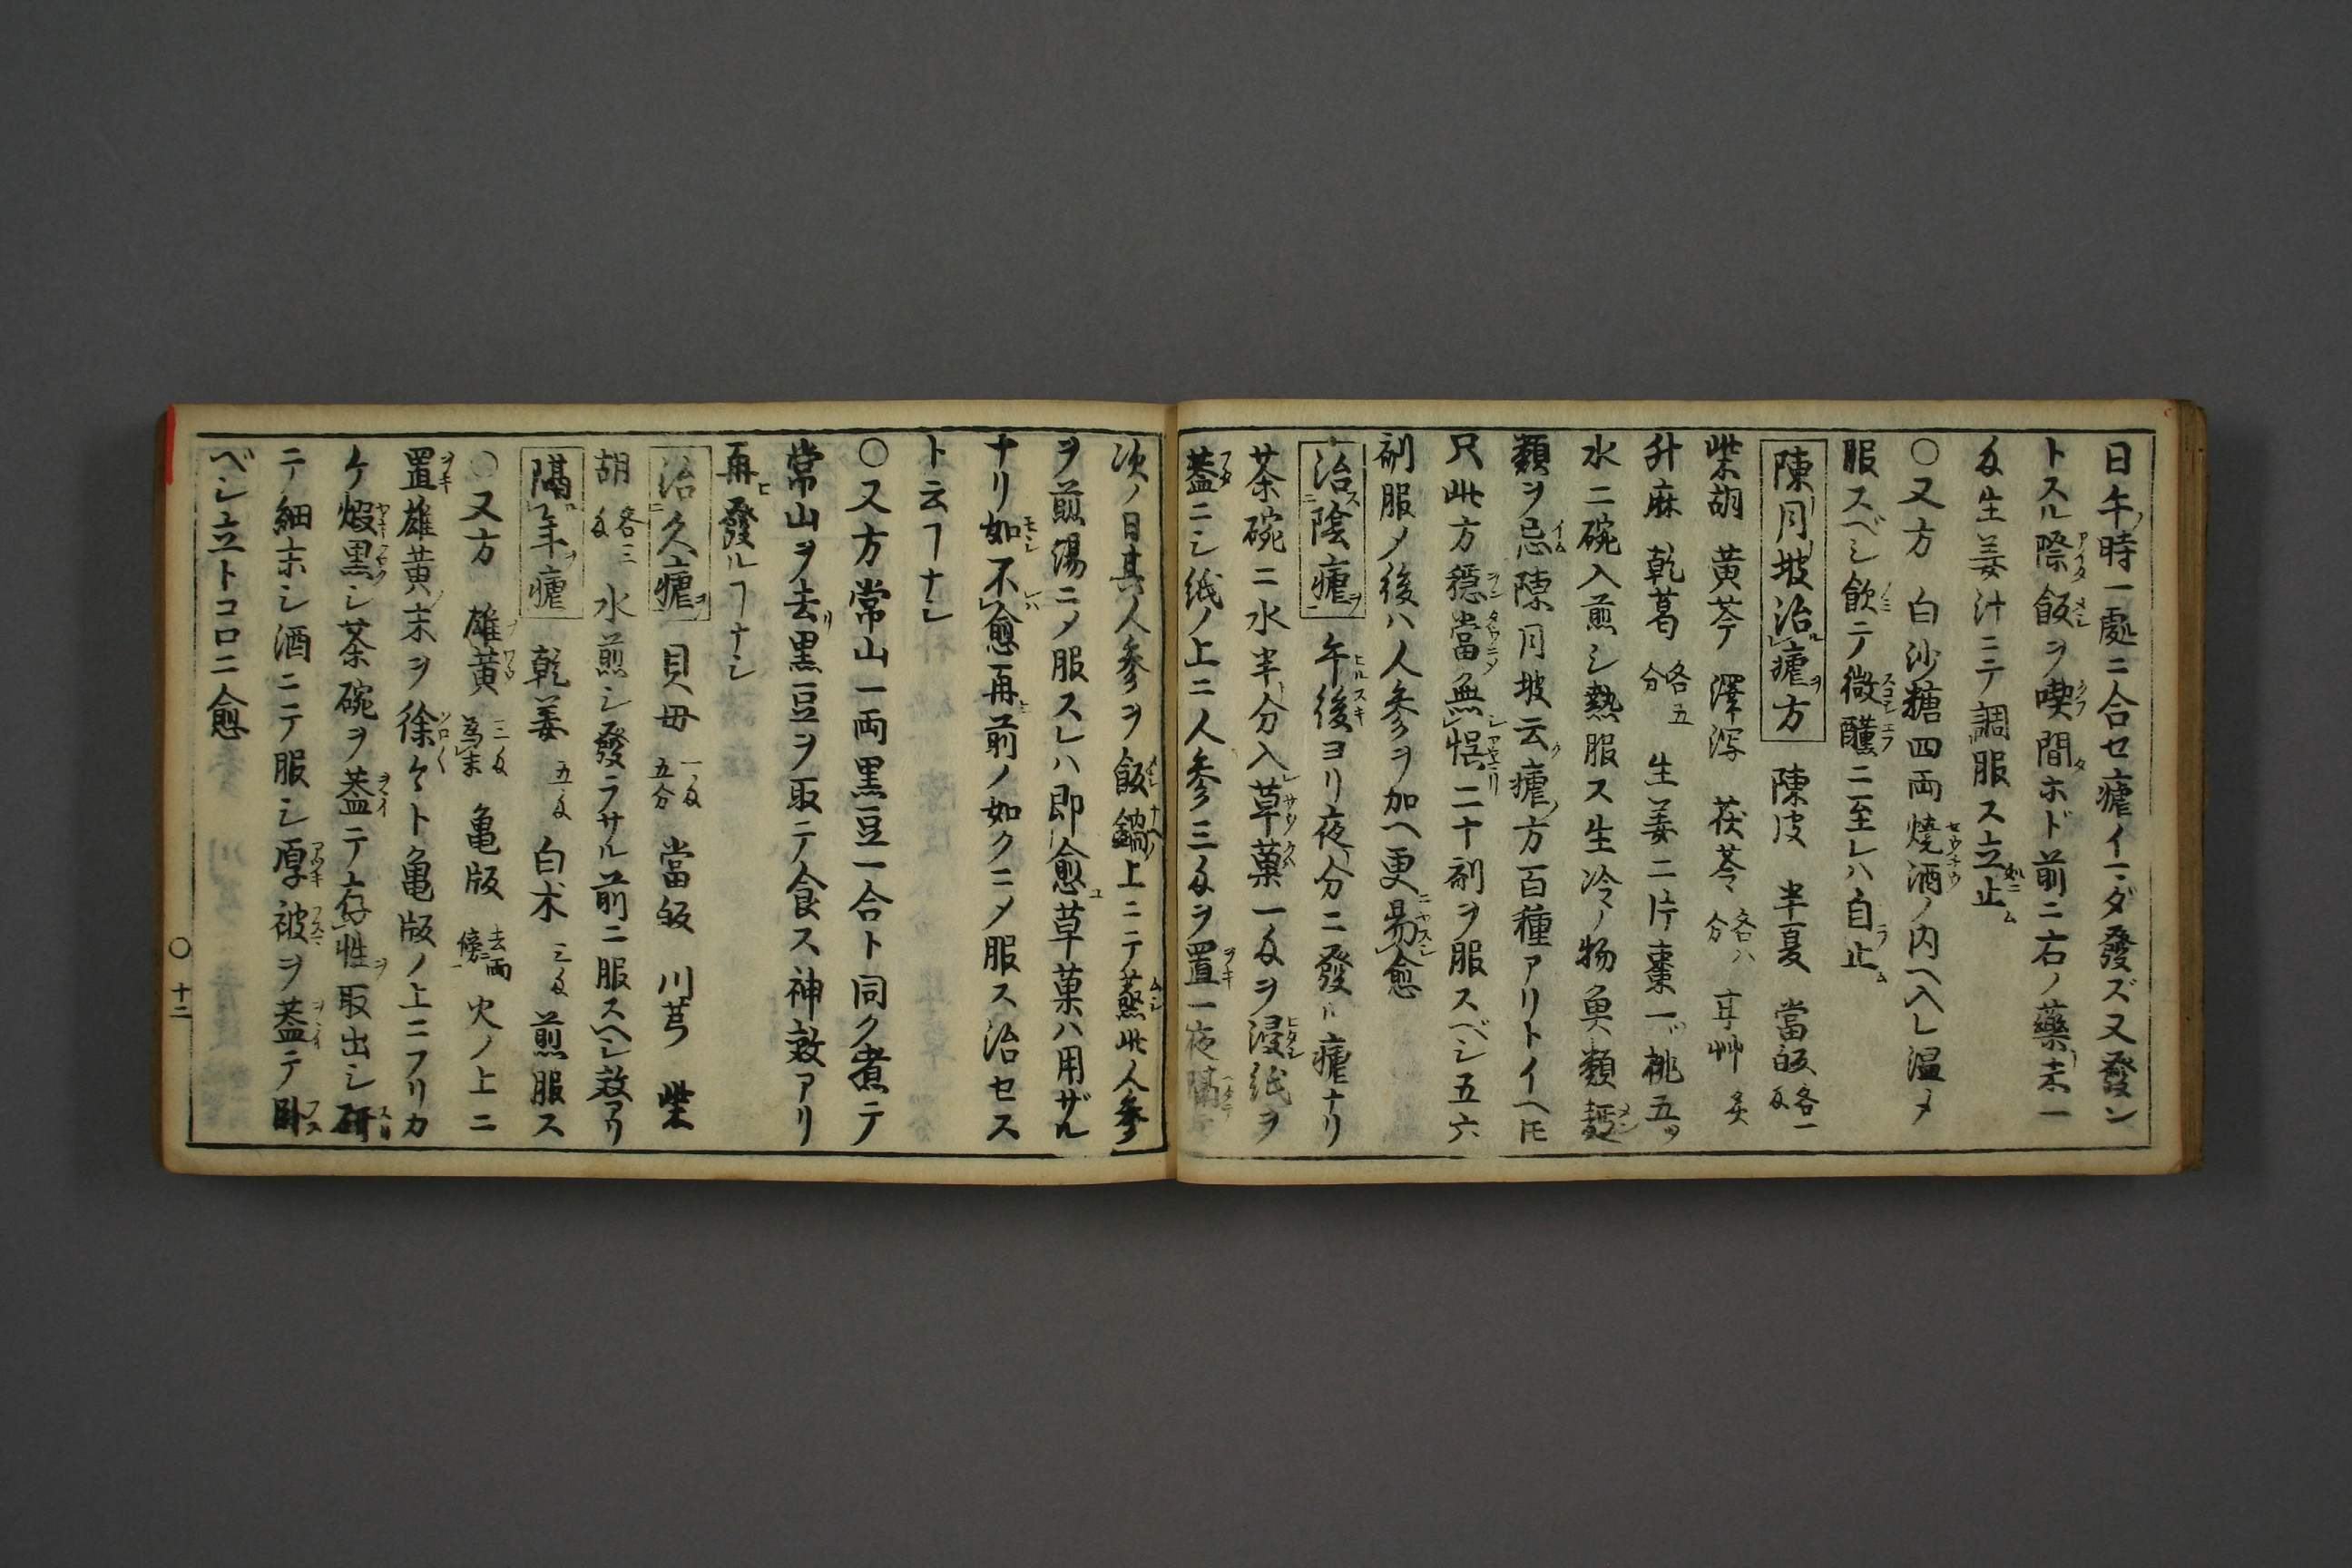 日午時一處ニ合セ瘧イマダ發ズ又發ン
トスル際飯ヲ喫間ホド前ニ右ノ藥末一
匁生姜汁ニテ調服ス立止
○又方 白沙糖四両燒酒ノ内ヘ入レ温メ
服スベシ飲テ微醺ニ至レハ自止
陳月坡治瘧方 陳皮 半夏 當皈各一匁
柴胡 黄芩 澤泻 茯苓各八分 甘艸炙
升麻 乾葛各五分 生姜二片棗一ツ桃五ツ
水二碗入煎シ熱服ス生冷ノ物魚類麪
類ヲ忌陳月坡云瘧ノ方百種アリトイヘ𪜈
只此方穏當無悞二十剤ヲ服スベシ五六
剤服メ後ハ人参ヲ加ヘ更易愈
治陰瘧 午後ヨリ夜分ニ發ル瘧ナリ
茶碗ニ水半分入草菓一匁ヲ浸紙ヲ
蓋ニシ紙ノ上ニ人参三匁ヲ置一夜隔
次ノ日其人参ヲ飯鍋上ニテ蒸此人参
ヲ煎湯ニメ服スレハ即愈草菓ハ用ザル
ナリ如不愈再前ノ如クニメ服ス治セス
ト云ヿナシ
○又方常山一両黒豆一合ト同ク煮テ
常山ヲ去黒豆ヲ取テ食ス神效アリ
再發ルヿナシ
治久瘧 貝母一匁五分 當皈 川芎 柴
胡各三匁 水煎シ發ラサル前ニ服スヘシ效アリ
隔年瘧 乾姜五匁 白朮三匁 煎服ス
○又方 雄黄三匁為末 亀版去両傍 火ノ上ニ
置雄黄末ヲ徐々ト亀版ノ上ニフリカ
ケ煅黒シ茶碗ヲ蓋テ存性取出シ研
テ細末シ酒ニテ服シ厚被ヲ蓋テ臥
ベシ立トコロニ愈
○十二